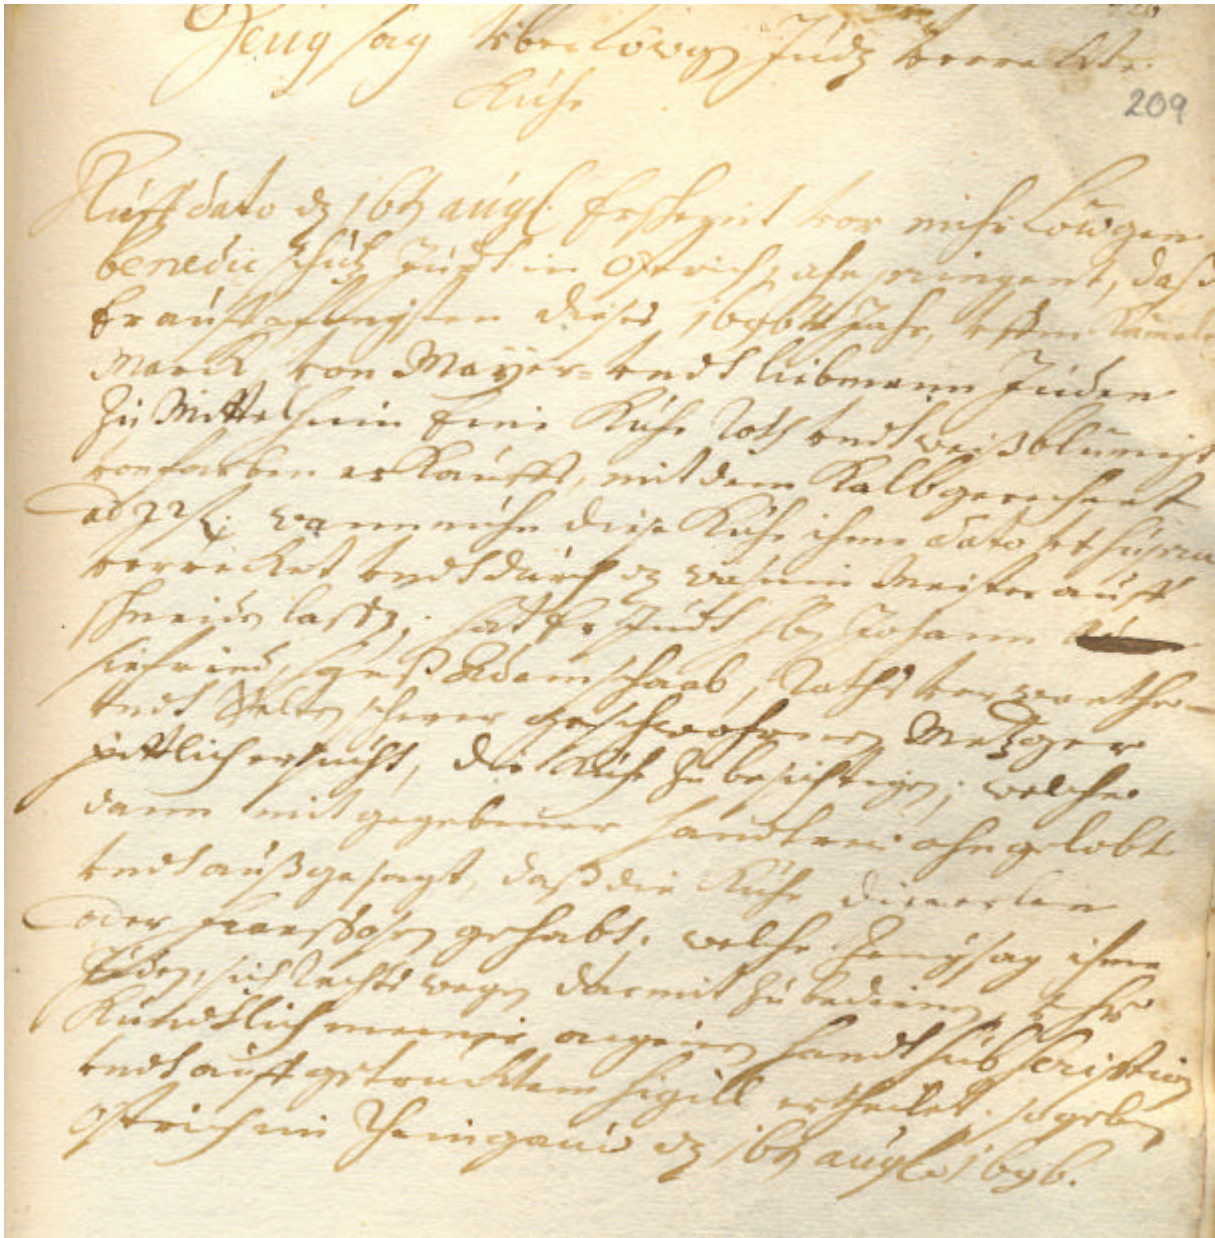 Zeug sag über Löwg Judz verreckte
Kuhe
209
Auff dato dz 16t augl. Erscheynt vor mich Löwgen
benedic schutz Judt in Östrich, ahn pringent, daß
Er auff dieses 1696te Jahr,
Marck von Mayer undt liebmann Juden
zu Mittelheim Eine Kuhe roth undt weißblumigt
von farben erkaufft, mit dem Kalb gerechent
ad 22 fl; wann nuhn diese Kuhe ihme dato et supra
verrecket undt durch dz waßenmeister auff
schneiden lasßen; hat Er Judt H. Johann
siefried, Adam schaab, Raths verwanthe
undt Velten scherer geschwohrnen Metzger
pittlich ersucht, die Kuhe zu besichtigen; welche
dann mit gegebener handtrew ahngelobt
undt außgesagt, daß die Kuhe
oder frantzoßen gehabt. welche Zeugsag ihme
Juden, sich Rechts wegen darmit zu bedienen,
Kundtlich meiner aigenen handt subscription
undt auff getrucktem sigill ertheilet. so geben
Östrich im Rheingauw dz 16t augl. 1696.